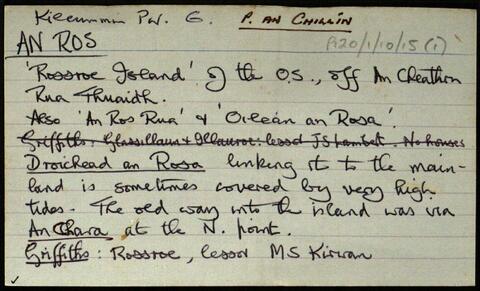 Kilcummin Par. G. P. AN CHILLÍN
AN ROS
P120/1/10/15(1)
'Rossroe Island' of the O.S., off An Cheathrú
Rua Thuaidh.
Also 'An Ros Rua' & 'Oileán an Rosa'.
Griffiths: Glassillaun & Illauroe: lessor J S Lambert. No houses
Droichead an Rosa linking it to the main-
land is sometimes covered by very high
tides. The old way into the island was via
An Chara at the N. point.
Griffiths: Rossroe, lessor M S Kirwan